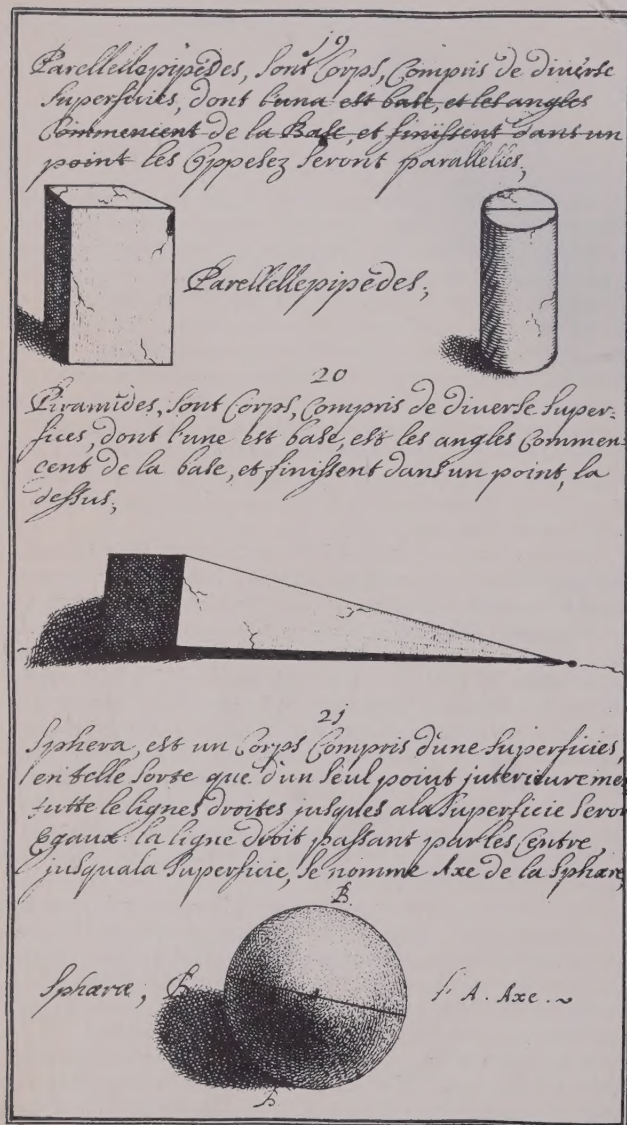 19
Parellellepipedes, sont Corps, Compris de diverse
superficies, dont l'una est base, et les angles
Commencent de la Base, et finissent dans un
point les Oppesez seront parallelles,
Parellellepipedes;
20
Piramides, sont Corps, Compris de diverse super-
fices, dont l'une est base, est les angles Commen-
cent de la base, et finissent dans un point, la
dessus,
21
Sphera, est un Corps Compris d'une superficies,
en telle sorte que d'un seul point juterieureme
tutte le lignes droites jusques ala superficie seron
Egaux: la ligne droit passant par les Centre,
jusquala superficie, se nomme Axe de la Sphære,
B.
Sphæræ, B
A. Axe.
B